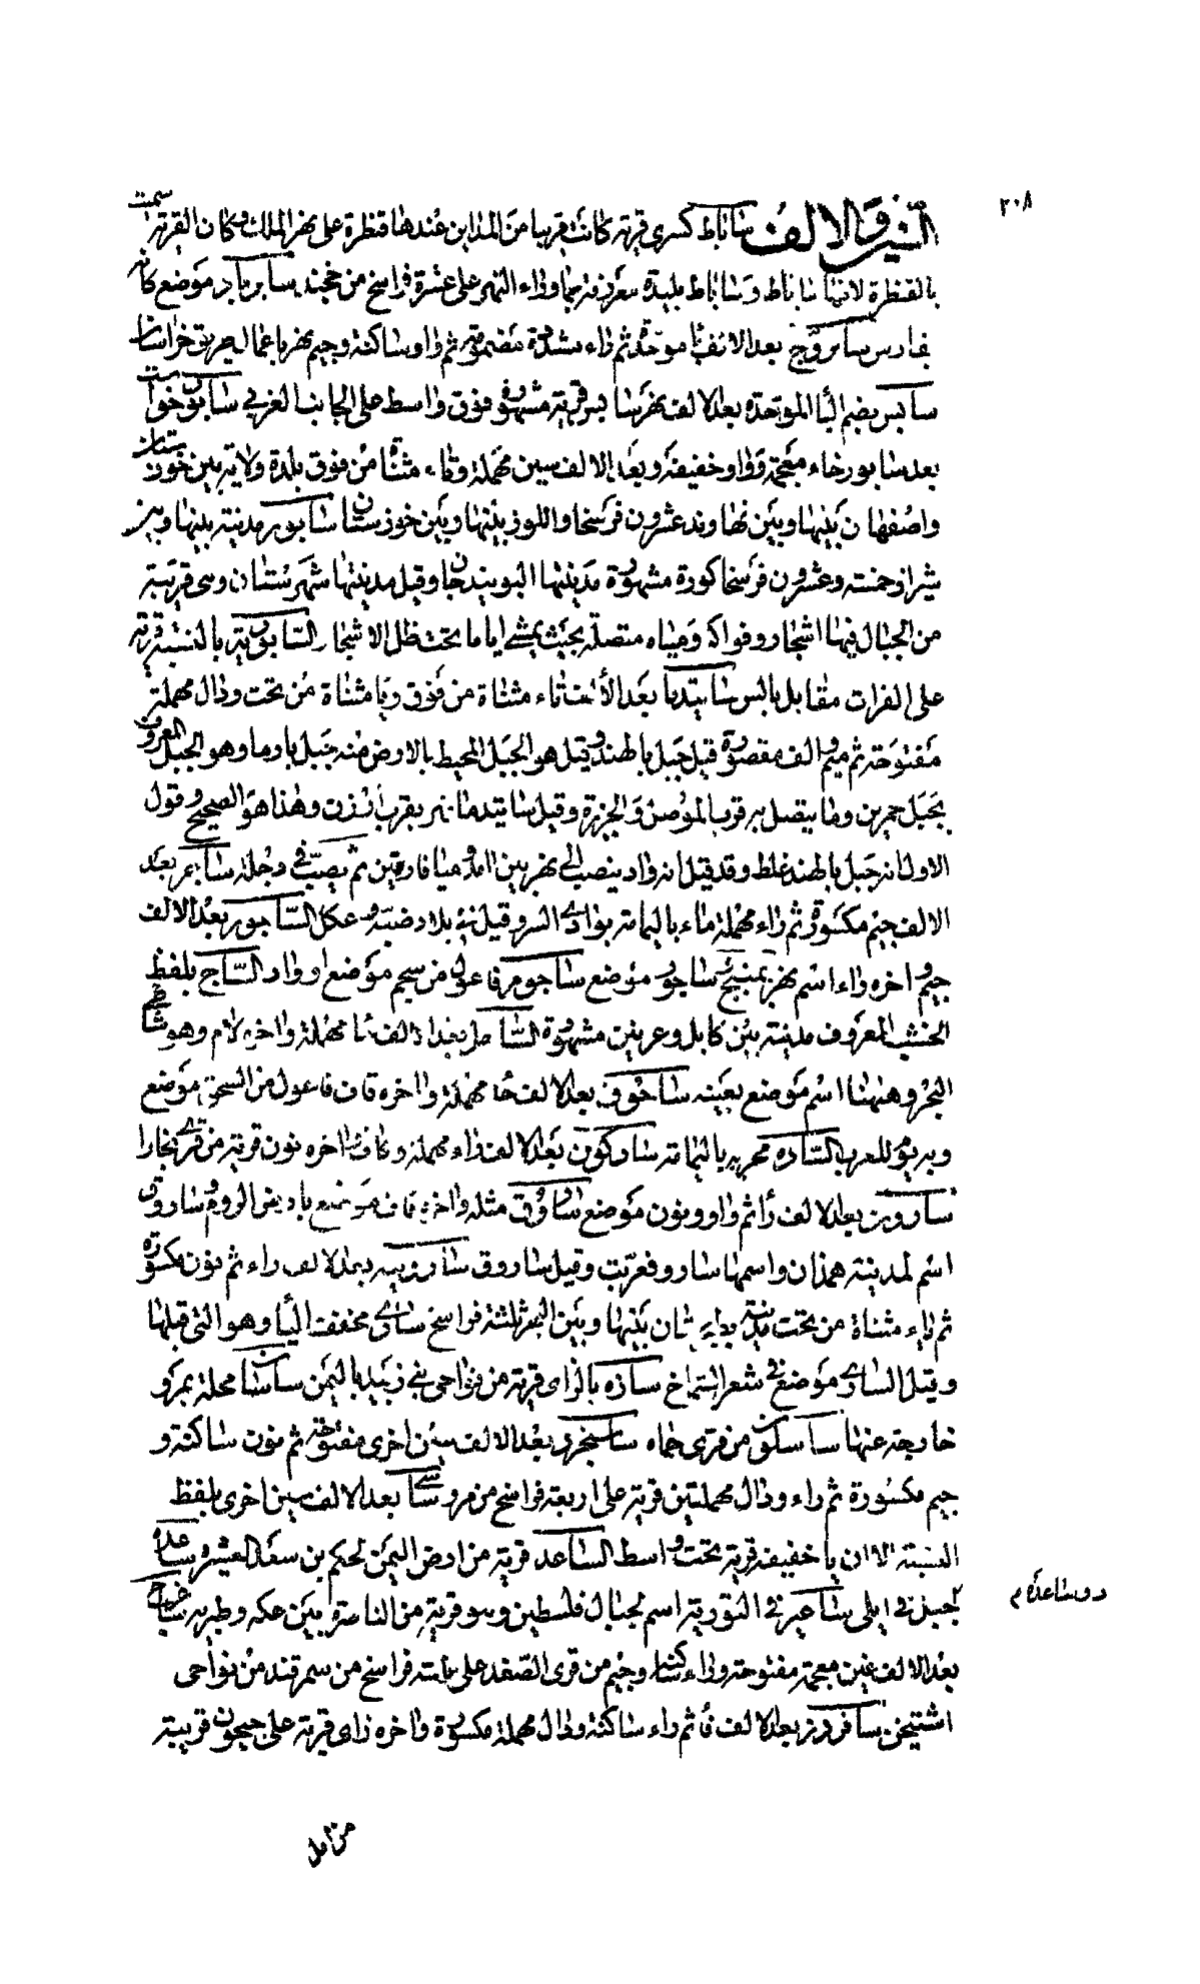 ٢٠٨
السين والالف ساباط كسرى قرية كانت قريبا من المداين عندها قنطرة على نهر الملك وكان القرية سميت
بالقنطرة لانها ساباط وساباط بليدة معروفة بما وراء النهر على عشرة فراسخ من خجند سابرباد موضع كانه
بفارس سابروج بعد الالف با موحدة ثم راء مشددة مضمومة ثم واو ساكنة وجيم نهر باعمال طريق خراسان
سابس بضم البا الموحدة بعد الالف نهر سابس قرية مشهورة فوق واسط على الجانب الغربي سابور خواست
بعد سابور خاء معجمة وواو خفيفة وبعد الالف سين مهملة وتاء مثناة من فوق بلدة ولاية بين خوزستان
واصفهان بينها وبين نهاوند عشرون فرسخا واللور بينها وبين خوزستان سابور مدينة بينها وبين
شيراز خمسة وعشرون فرسخا كورة مشهورة مدينتها النوبندجان وقيل مدينتها شهرستان وهى قريبة
من الجبال فيها اشجار وفواكه ومياه متصلة بحيث يمشى اياما تحت ظل الاشجار السابورية بالنسبة قرية
على الفرات مقابل بالس ساتيدما بعد الألف تاء مثناة من فوق ويا مثناة من تحت ودال مهملة
مفتوحة ثم ميم والف مقصورة قيل جبل بالهند وقيل هو الجبل المحيط بالارض منه جبل بارما وهو الجبل المعروف
بجبل حمرين وما يتصل به قرب الموصل والجزيرة وقيل ساتيدما نهر بقرب أرزن وهذا هو الصحيح وقول
الاول انه جبل بالهند غلط وقد قيل انه واد ينصب الى نهر بين آمد وميافارقين ثم يصب في دجلة ساجر بعد
الالف جيم مكسورة ثم راء مهملة ماء باليمامة بوادى السر وقيل في بلاد ضبة وعكل الساجور بعد الالف
جيم واخره راء اسم نهر بمنبج ساجو موضع ساجوم فاعول من سجم موضع او واد الساج بلفظ
الخشب المعروف مدينة بين كابل وغزنين مشهورة الساحل بعد الالف حا مهملة واخره لام وهو شاطئ
البحر وههنا اسم موضع بعينه ساحوق بعد الالف حا مهملة واخره قاف فاعول من السحق موضع
وبه يوم للعرب السادة محرية باليمامة ساركون بعد الالف راء مهملة وكاف واخره نون قرية من قرى بخارا
سارون بعد الالف رأ ثم واو ونون موضع ساروق مثله واخره قاف موضع بارض الروم وساروق
اسم لمدينة همذان واسمها سارو فعربت وقيل ساروق سارية بعد الالف راء ثم نون مكسورة
ثم ياء مثناة من تحت مدينة بطبرستان بينها وبين البحر ثلثة فراسخ سارى مخفف اليأ وهو التى قبلها
وقيل السارى موضع في شعر الشماخ سازه بالزاى قرية من نواحى بنى زبيد باليمن ساسان محلة بمرو
خارجة عنها ساسكون من قرى حماه ساسنجرد بعد الالف سين اخرى مفتوحة ثم نون ساكنة و
جيم مكسورة ثم راء ودال مهملتين قرية على اربعة فراسخ من مرو ساسى بعد الالف سين اخرى بلفظ
النسبة الا ان يا خفيفة قرية تحت واسط الساعد قرية من ارض اليمن لحكم بن سعد العشيرة وساعدة
كجبل في ابلى ساعير في التورية اسم لجبال فلسطين وهو قرية من الناصرة بين عكه وطبريه ساغرج
بعد الالف غين معجمة مفتوحة وراء ساكنة وجيم من قرى الصغد على خمسة فراسخ من سمرقند من نواحى
اشتيخن سافردز بعد الالف فأ ثم راء ساكنة ودال مهملة مكسورة واخره زاى قرية على جيحون قريبة
دو ساعدة م
من آمل